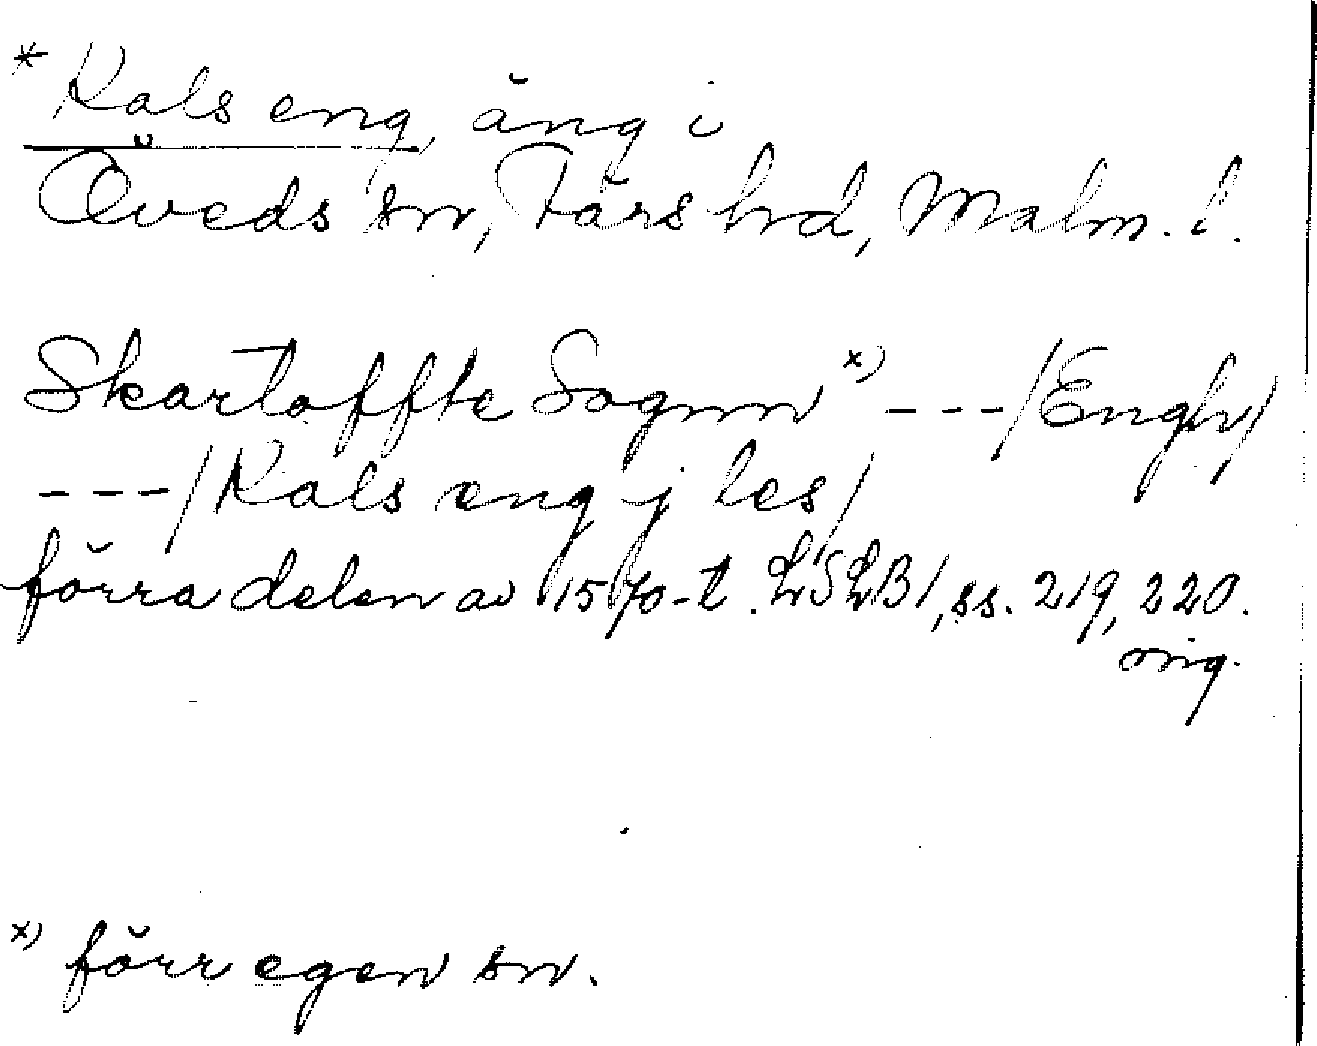 * Kals eng, äng i
Öveds sn, Färs hd, Malm. l.
Skartoffte Sognn x) ---/Engh/
---/Kals eng j les/
förra delen av 1570-t. LSLB 1, ss. 219, 220.
orig.
x) förr egen sn.